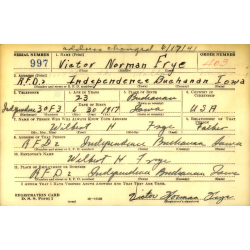 address changed 6/17/41
SERIAL NUMBER
1. NAME
ORDER NUMBER
997
Victor Norman Frye
403
2. ADDRESS
R.F.D. 2 Independence Buchanan Iowa
3. TELEPHONE
4. AGE IN YEARS
5. PLACE OF BIRTH
6. COUNTRY OF CITIZENSHIP
23
Buchanan
DATE OF BIRTH
Independence 3 of 3
30 1917
Iowa
USA
7. NAME OF PERSON WHO WILL ALWAYS KNOW YOUR ADDRESS
8. RELATIONSHIP OF THAT PERSON
Wilbert H Frye
Father
9. ADDRESS OF THAT PERSON
R F D 2 Independence Buchanan Iowa
10. EMPLOYER'S NAME
Wilbert H Frye
11. PLACE OF EMPLOYMENT OR BUSINESS
R.F.D. 2 Independence Buchanan Iowa
I AFFIRM THAT I HAVE VERIFIED ABOVE ANSWERS AND THAT THEY ARE TRUE.
REGISTRATION CARD
D. S. S. Form 1
Victor Norman Frye